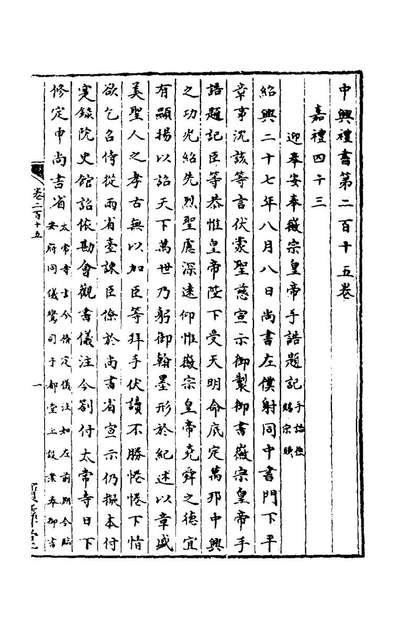 中興禮書第二百十五卷
嘉禮四十三
迎奉安奉徽宗皇帝手詔題記
紹興二十七年八月八日尚書左僕射同中書門下平
章事沉該等言伏蒙聖慈宣示御製御書徽宗皇帝手
詔題記臣等恭惟皇帝陛下受天明命底定萬邦中興
之功光紹先烈聖慮深遠仰惟徽宗皇帝堯舜之德宜
有顯揚以詔天下萬世乃躬御翰墨形於紀述以章盛
美聖人之孝古無以加臣等拜手伏讀不勝惓惓下情
欲乞召侍從兩省臺諫臣僚於尚書省宣示仍摸本付
寔錄院史館詔依勘會觀書儀注今劄付太常寺日下
修定申尚書省太常寺言今條定儀注如左前期令臨
安府同儀鸞司于都堂上設
卷二百十五
一